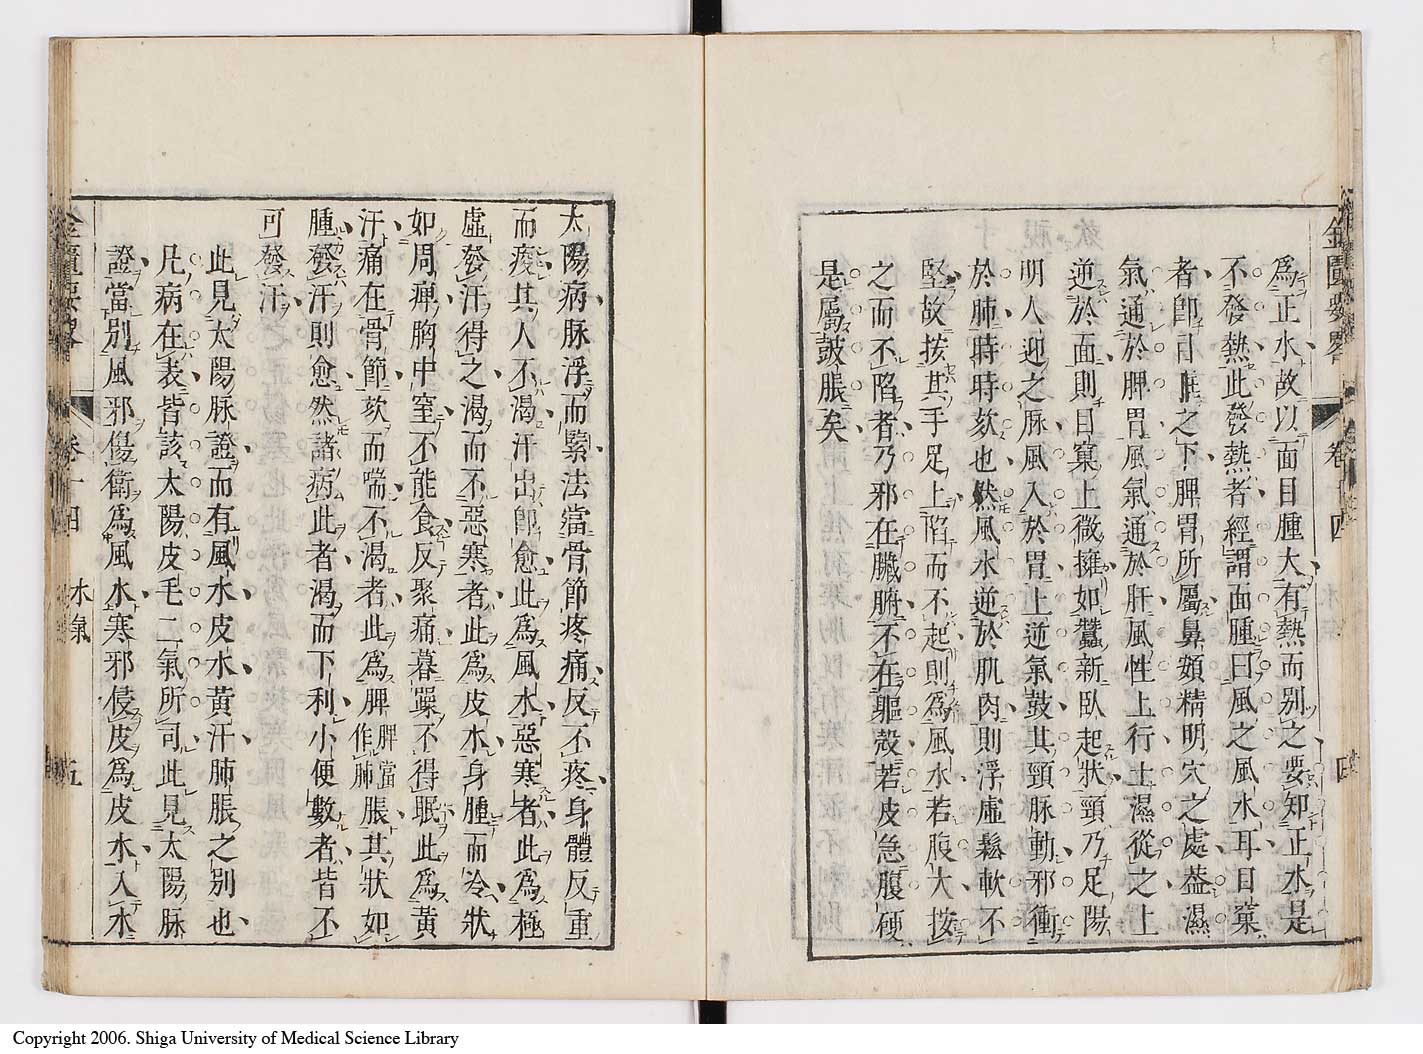 金匱要畧
卷十四
四
爲正水故以面目腫大有熱而別之要知正水是
不發熱此發熱者經謂面腫曰風之風水耳目窠
者卽目胞之下脾胃所屬鼻頞精明穴之處葢濕
氣通於脾胃風氣通於肝風性上行土濕從之上
逆於面則目窠上微擁如蠶新臥起狀頸乃足陽
明人迎之脉風入於胃上逆氣鼓其頸脉動邪衝
於肺時時欬也然風水逆於肌肉則浮虛鬆軟不
堅故按其手足上陷而不起則爲風水若腹大按
之而不陷者乃邪在臟腑不在軀殼若皮急腹硬
是屬鼓脹矣
太陽病脉浮而緊法當骨節疼痛反不疼身體反重
而痠其人不渴汗出卽愈此爲風水惡寒者此爲極
虛發汗得之渴而不惡寒者此爲皮水身腫而冷狀
如周痺胸中窒不能食反聚痛暮躁不得眠此爲黃
汗痛在骨節欬而喘不渴者此爲脾脾當作肺脹其狀如
腫發汗則愈然諸病此者渴而下利小便數者皆不
可發汗
此見太陽脉證而有風水皮水黃汗肺脹之別也
凡病在表皆該太陽皮毛二氣所司此見太陽脉
證當別風邪傷衛爲風水寒邪侵皮爲皮水入水
金匱要畧
卷十四
水氣
五
Copyright 2006. Shiga University of Medical Science Library